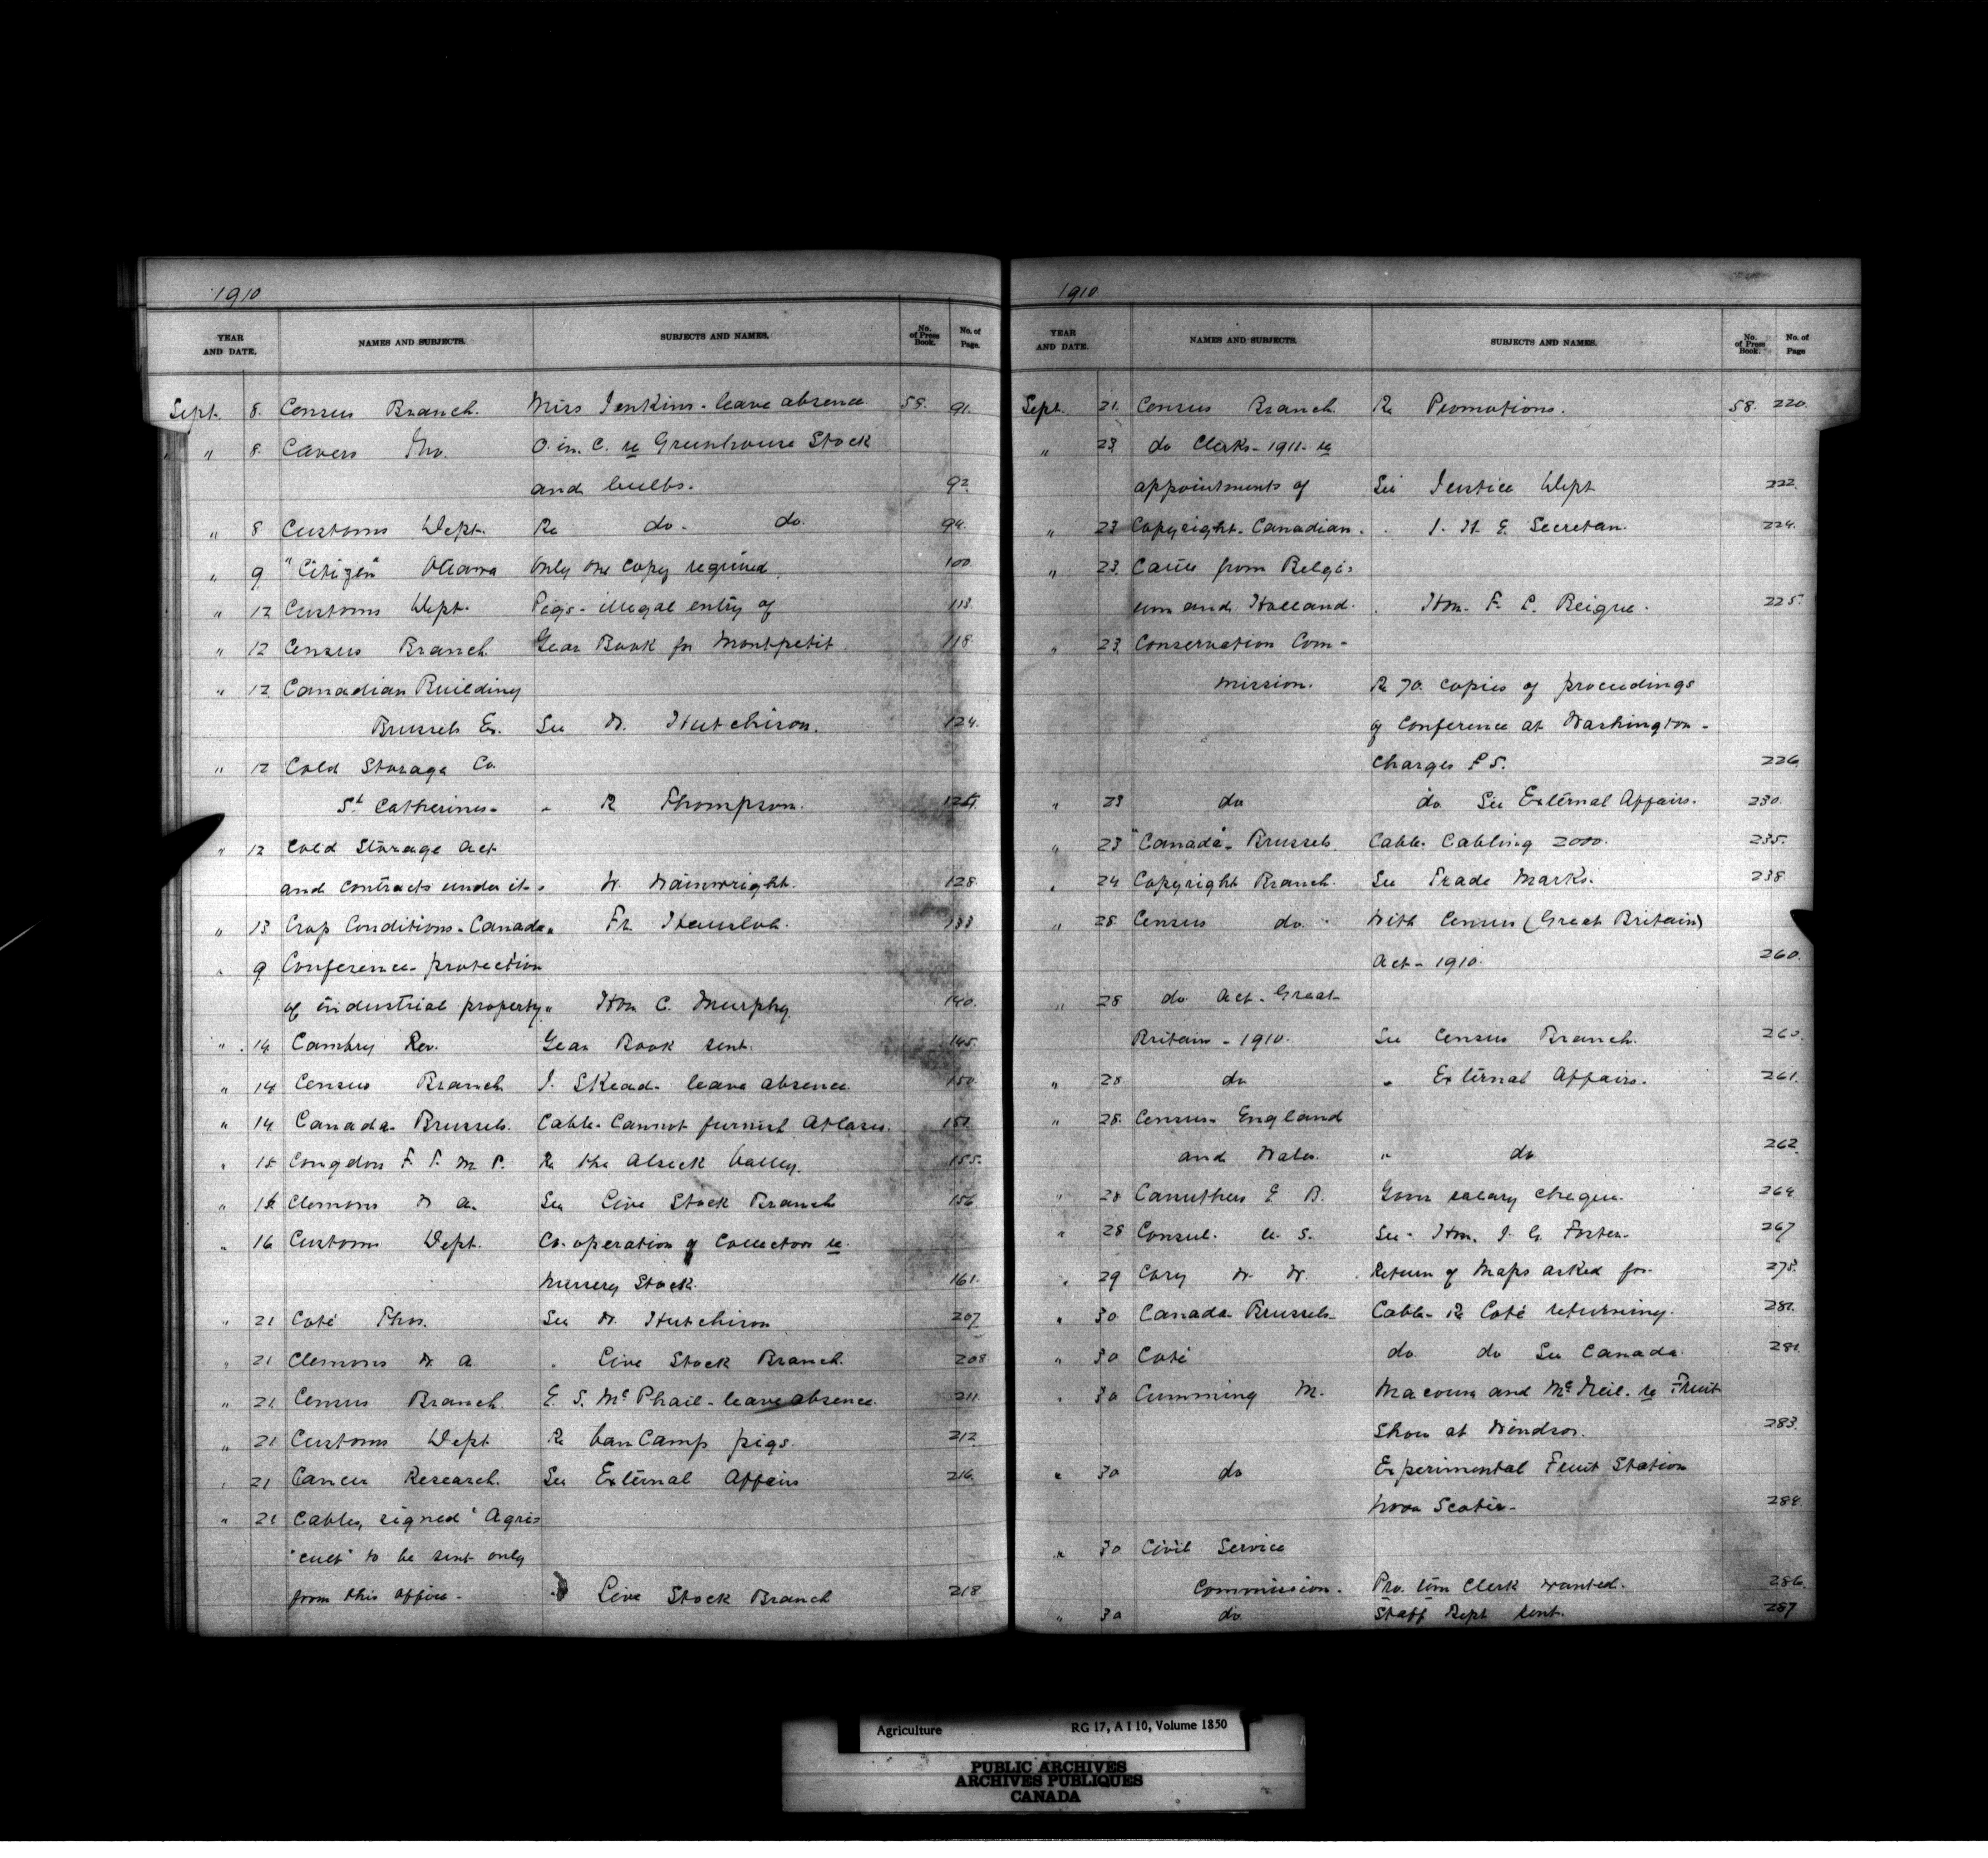 1910
YEAR AND DATE. NAMES AND SUBJECTS. SUBJECTS AND NAMES. No. of Press Book. No. of Page.
Sept. 8. Census Branch. Miss Jenkins - leave absence 58. 91.
" 8. Cavers Tho. O. in. C. re Greenhouse Stock
and bulbs. 92.
" 8 Customs Dept. Re do. do. 94.
" 9 "Citizen" Ottawa Only one copy required. 100.
" 12 Customs Dept. Pigs - illegal entry of 113.
" 12 Census Branch Year Book for Montpetit. 118.
" 12 Canadian Building
Brussels Ex. See W. Hutchison. 124.
" 12 Cold Storage Co.
St Catherines - " R Thompson.
" 12 Cold Storage Act
and contracts under it - " W. Wainwright. 128.
" 13 Crop Conditions - Canada " Fr. 133
" 9 Conference - protection
of industrial property " Hon C. Murphy. 140.
" 14 Rev. Year Book sent. 145.
" 14 Census Branch J. Skead - leave absence. 150.
" 14. Canada - Brussels. Cable - Cannot furnish Atlases. 151.
" 15 Congdon F. T. M. P. Re the Alseck Valley. 155.
" 15 Clemons W A. See Live Stock Branch 156
" 16 Customs Dept. Co-operation of Collectors re.
Nursery Stock. 161.
" 21 Coté Thos. See W. Hutchison 207
" 21 Clemons W A. " Live Stock Branch. 208
" 21. Census Branch. E. S. McPhail - leave absence. 211.
" 21 Customs Dept Re Van Camp pigs. 212.
" 21 Cancer Research. See External Affairs 216.
" 21 Cables, signed "Agri=
"cult" to be sent only
from this office - Live Stock Branch 218
1910
YEAR AND DATE. NAMES AND SUBJECTS. SUBJECTS AND NAMES. No. of Press Book. No. of Page
Sept. 21. Census Branch. Re Promotions. 58. 220.
" 23 do Clerks - 1911 - re
appointments of See Justice Dept 222.
" 23 Copyright - Canadian. " J. H. E. Secretan. 224.
" 23. Cattle from Belgi=
um and Holland. " Hon. F. L. Beique. 225.
" 23. Conservation Com-
mission. Re 70 copies of proceedings
of Conference at Washington -
Charges 226
" 23 do do See External Affairs. 230.
" 23 "Canada" - Brussels. Cable - Cabling 2000. 235.
" 24 Copyright Branch. See Trade Marks. 238
" 28 Census do. With Census (Great Britain)
Act - 1910. 260.
" 28 do Act - Great
Britain - 1910. See Census Branch. 260.
" 28 do " External Affairs. 261.
" 28. Census - England
and Wales. " do 262.
" 28 Carruthers E B. Govr salary cheque. 264.
" 28 Consul. U. S. See - Hon. J. G. Foster. 267
" 29 Cory W. W. Return of Maps asked for.
" 30 Canada - Brussels - Cable - Re Coté returning. 281.
" 30 Coté do do See Canada. 281.
" 30 Cumming M. Macoun and McNeil. re Fruit
Show at Windsor. 283.
" 30 do Experimental Fruit Station
Nova Scotia - 284.
" 30 Civil Service
Commission. Pro. tem Clerk wanted. 286.
" 30 do. Staff Rept sent. 287
Agriculture RG 17, A I 10, Volume 1850
PUBLIC ARCHIVES
ARCHIVES PUBLIQUES
CANADA